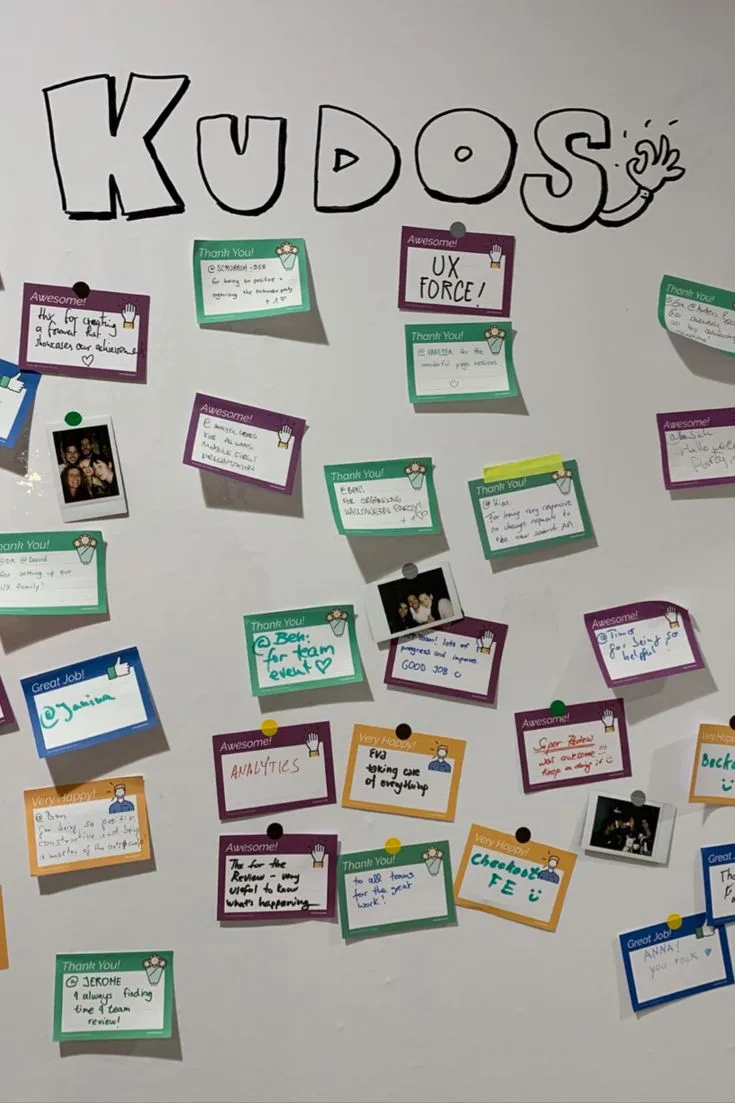 KUDOS
Thank You!
for being so positive +
organizing the halloween party
+ 1
Awesome!
UX
FORCE!
Awesome!
thx for creating
a format that
showcases our achievement
Thank You!
@VANESSA for the
wonderful yoga sessions
Thank You!
Awesome!
FOR ALWAYS
MOBILE FIRST
PRESENTATION
Awesome!
Hello
Party
Thank You!
@BEN!
FOR ORGANIZING
HALLOWEEN PARTY!
+ 1
Thank You!
For being very responsive
on change requests to
the new search API
ank You!
@David
for setting up our
UX family!
Thank You!
@Ben:
for team
event
team! lots of
progress and improve.
GOOD JOB
Awesome!
@Timo
for being so
helpful!
Great Job!
@Janina
Awesome!
ANALYTICS
Very Happy!
EVA
taking care
of everything
Awesome!
Super Review
was awesome!!!
Keep on doing it
Very Happy!
@Ben
for being so positive,
constructive and being
a master of the
Awesome!
Thx for the
Review - very
useful to know
what's happening
Thank You!
to all teams
for the great
work!
Very Happy!
Checkout
FE
Very
Great
Great Job!
ANNA!
you rock
Thank You!
@ JEROME
4 always finding
time 4 team
review!